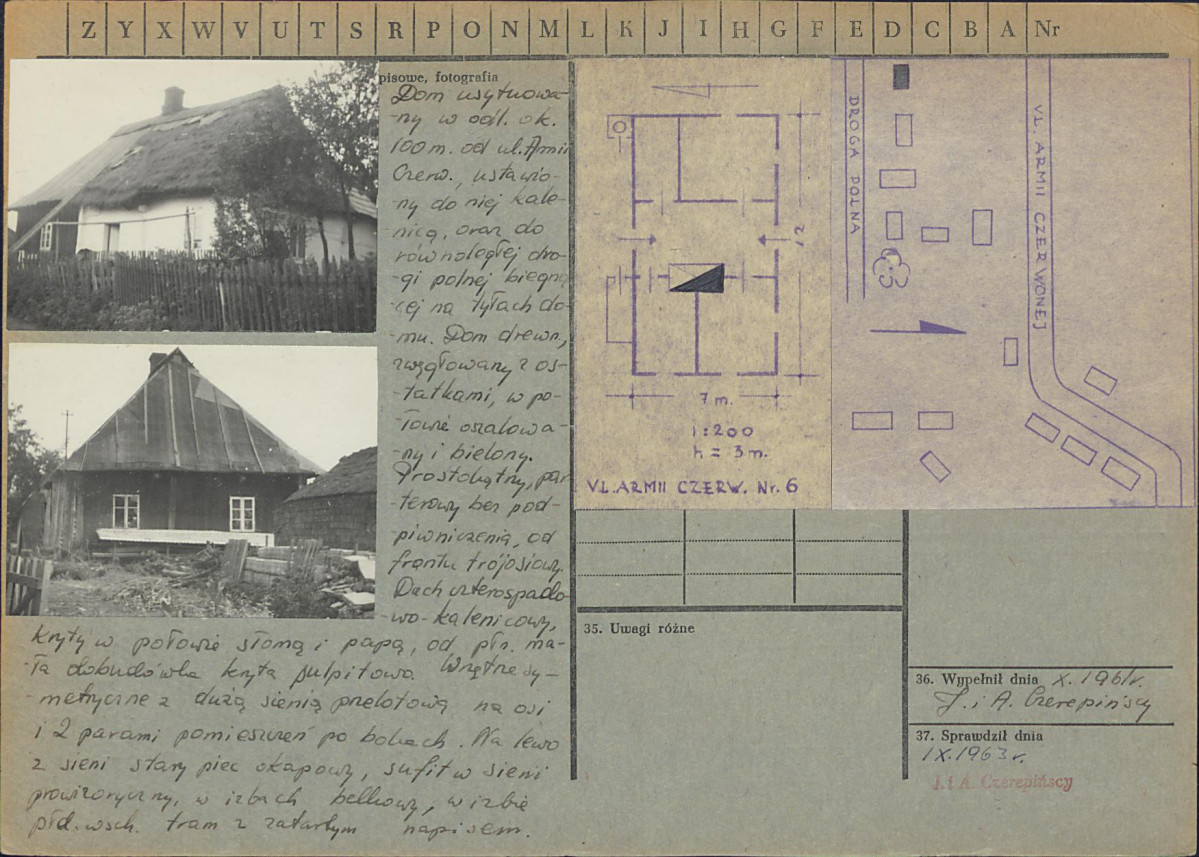 Z Y X W V U T S R P O N M L K J I H G F E D C B A Nr
pisowe, fotografia
Dom usytuowa-
-ny w odl. ok.
100 m. od ul. Armii
Czerw., ustawio-
ny do niej kale-
nicą, oraz do
równoległej dro-
-gi polnej biegną
-cej na tyłach do-
-mu. Dom drewn.,
zwęgłowany z os-
-tatkami, w po-
-łowie oszalowa-
-ny i bielony.
Prostokątny, par
-terowy bez pod-
piwniczenia, od
frontu trójosiowy.
Dach czterospado-
-wo-kalenicowy,
kryty w połowie słomą i papą, od płn. ma-
-ła dobudówka kryta pulpitowo. Wnętrze sy-
-metryczne z dużą sienią przelotową na osi
i 2 parami pomieszczeń po bokach. Na lewo
z sieni stary piec okapowy, sufit w sieni
prowizoryczny, w izbach belkowy, w izbie
płd. wsch. tram z zatartym napisem.
12
7 m.
1:200
h = 3 m.
UL. ARMII CZERW. Nr. 6
DROGA POLNA
UL. ARMII CZERWONEJ
35. Uwagi różne
36. Wypełnił dnia X. 1961r.
J. i A. Czerepińscy
37. Sprawdził dnia
IX. 1963 r.
J. i A. Czerepińscy